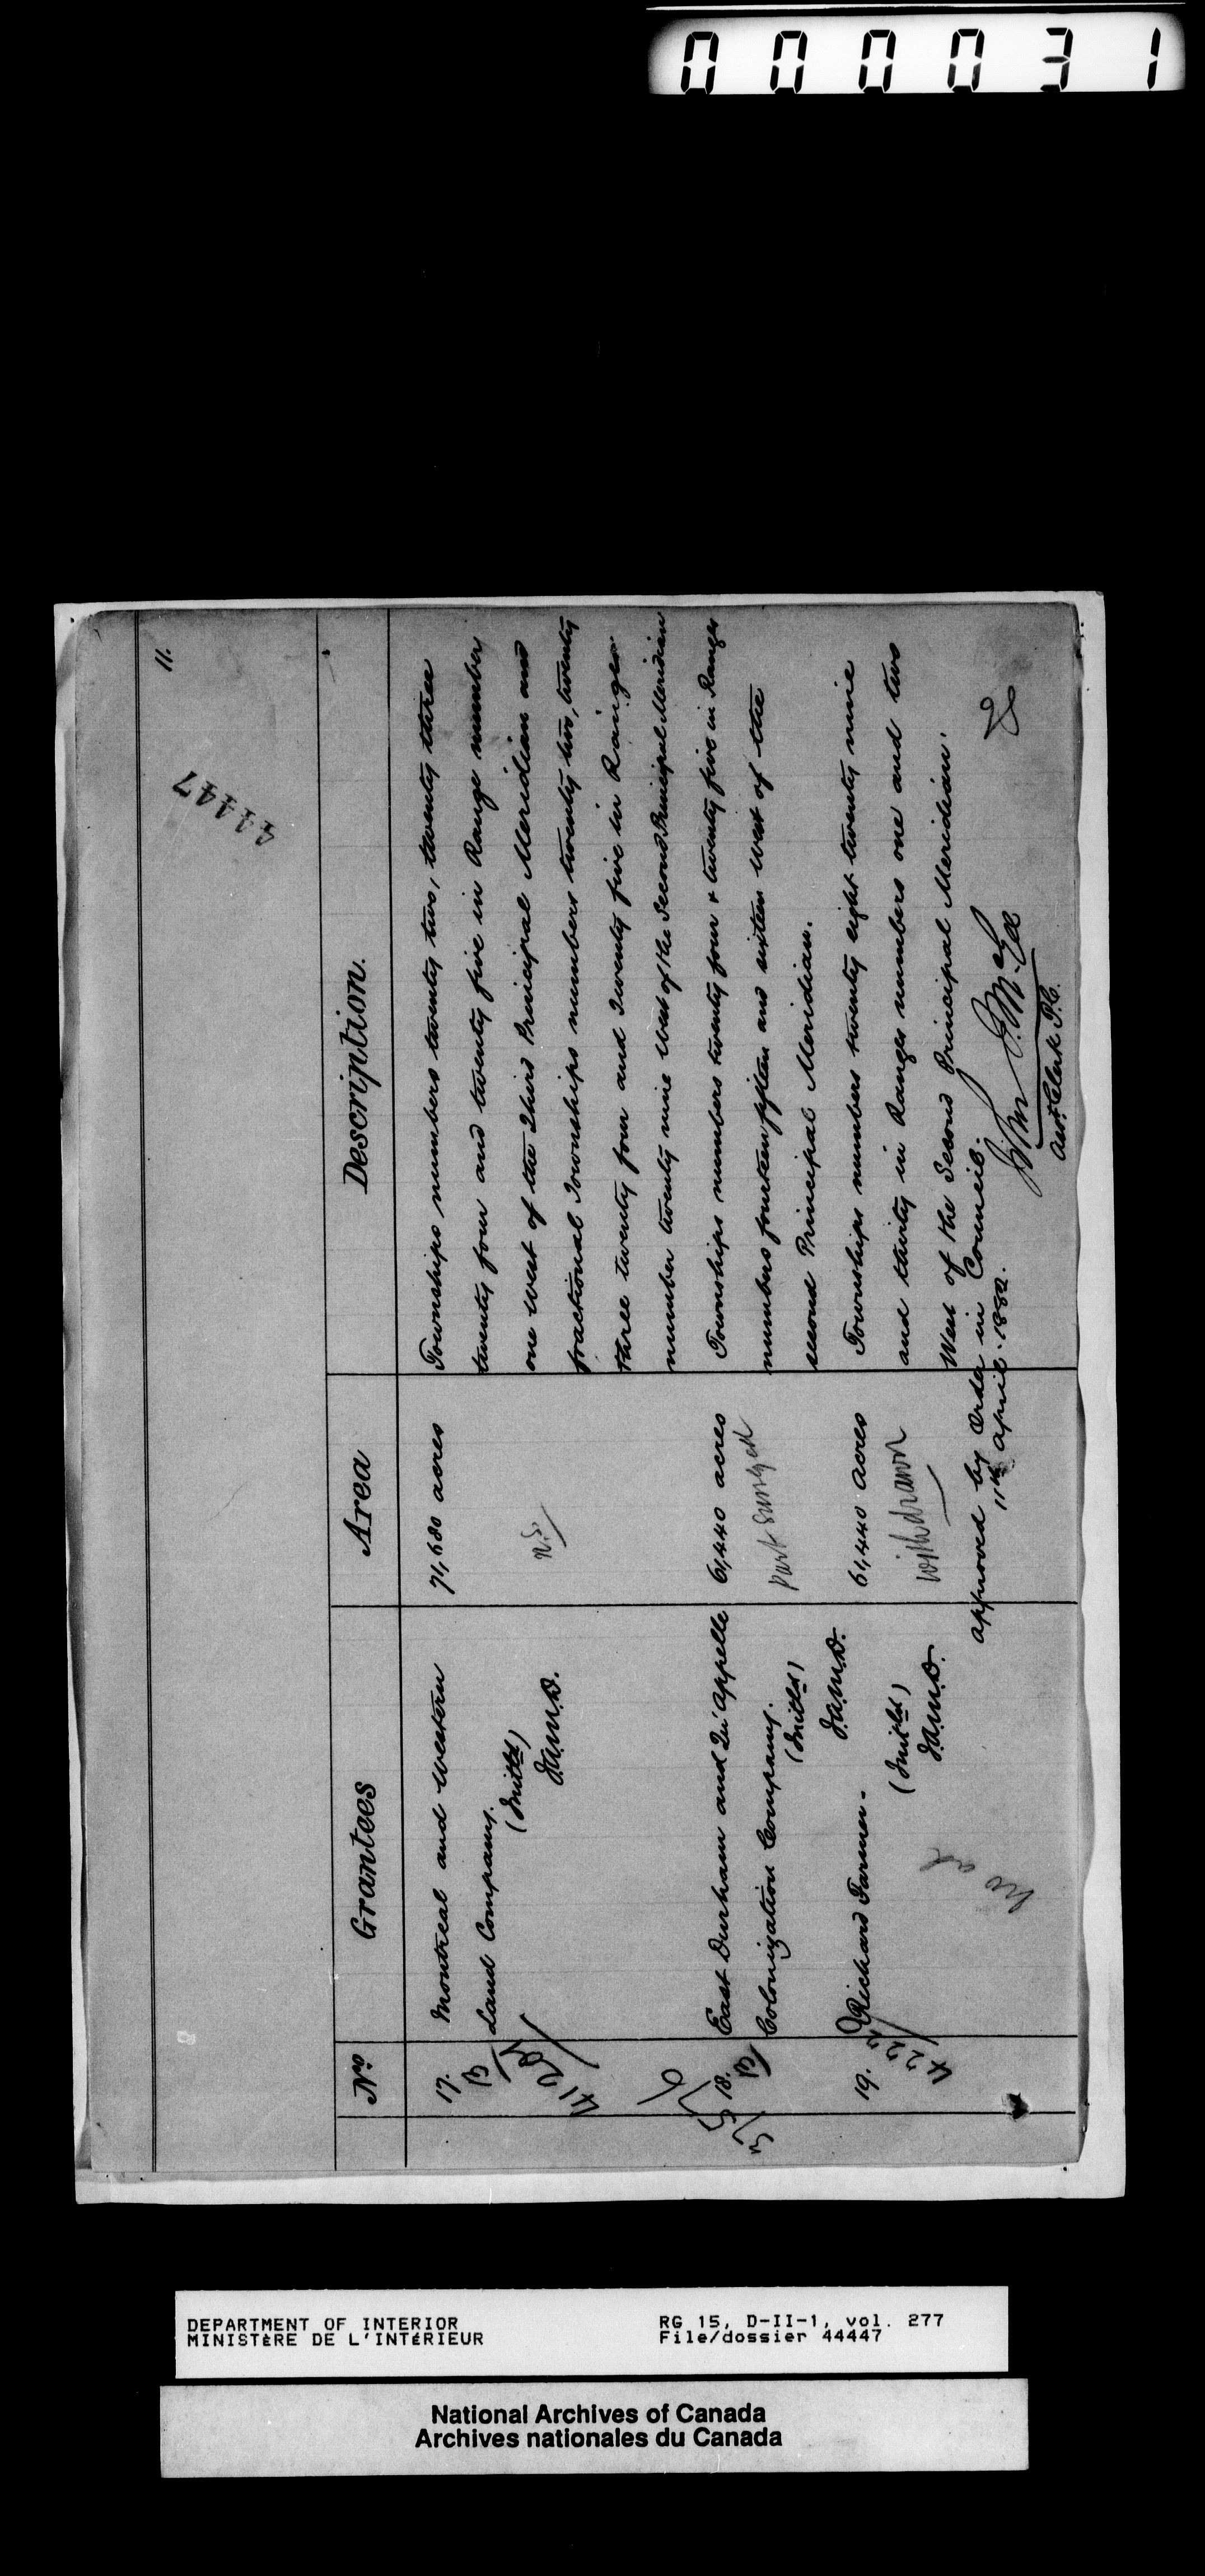 000031
11.
44447
No Grantees Area Description.
17. Montreal and Western 71,680 acres Townships numbers twenty two, twenty three
Land Company. twenty four and twenty five in Range number
(Initd) one west of the Third Principal Meridian and
J.A.M.D. n.S. fractional Townships numbers twenty two, twenty
three twenty four and twenty five in Ranger
number twenty nine West of the Second Principal Meridian
18. East Durham and Qu'appelle 61,440 acres Townships numbers twenty four & twenty five in Ranges
Colonization Company. part Surveyed numbers fourteen fifteen and sixteen West of the
(Initd) second Principal Meridian.
J.A.M.D.
19. Richard Turner. 61,440 acres Townships numbers twenty eight twenty nine
(Initd) withdrawn and thirty in Ranges numbers one and two
J.A.M.D. West of the Second Principal Meridian.
approved by Order in Council.
11th April. 1882.
John J. McGee
Clerk P.C.
DEPARTMENT OF INTERIOR
MINISTÈRE DE L'INTÉRIEUR
RG 15, D-II-1, vol. 277
File/dossier 44447
National Archives of Canada
Archives nationales du Canada